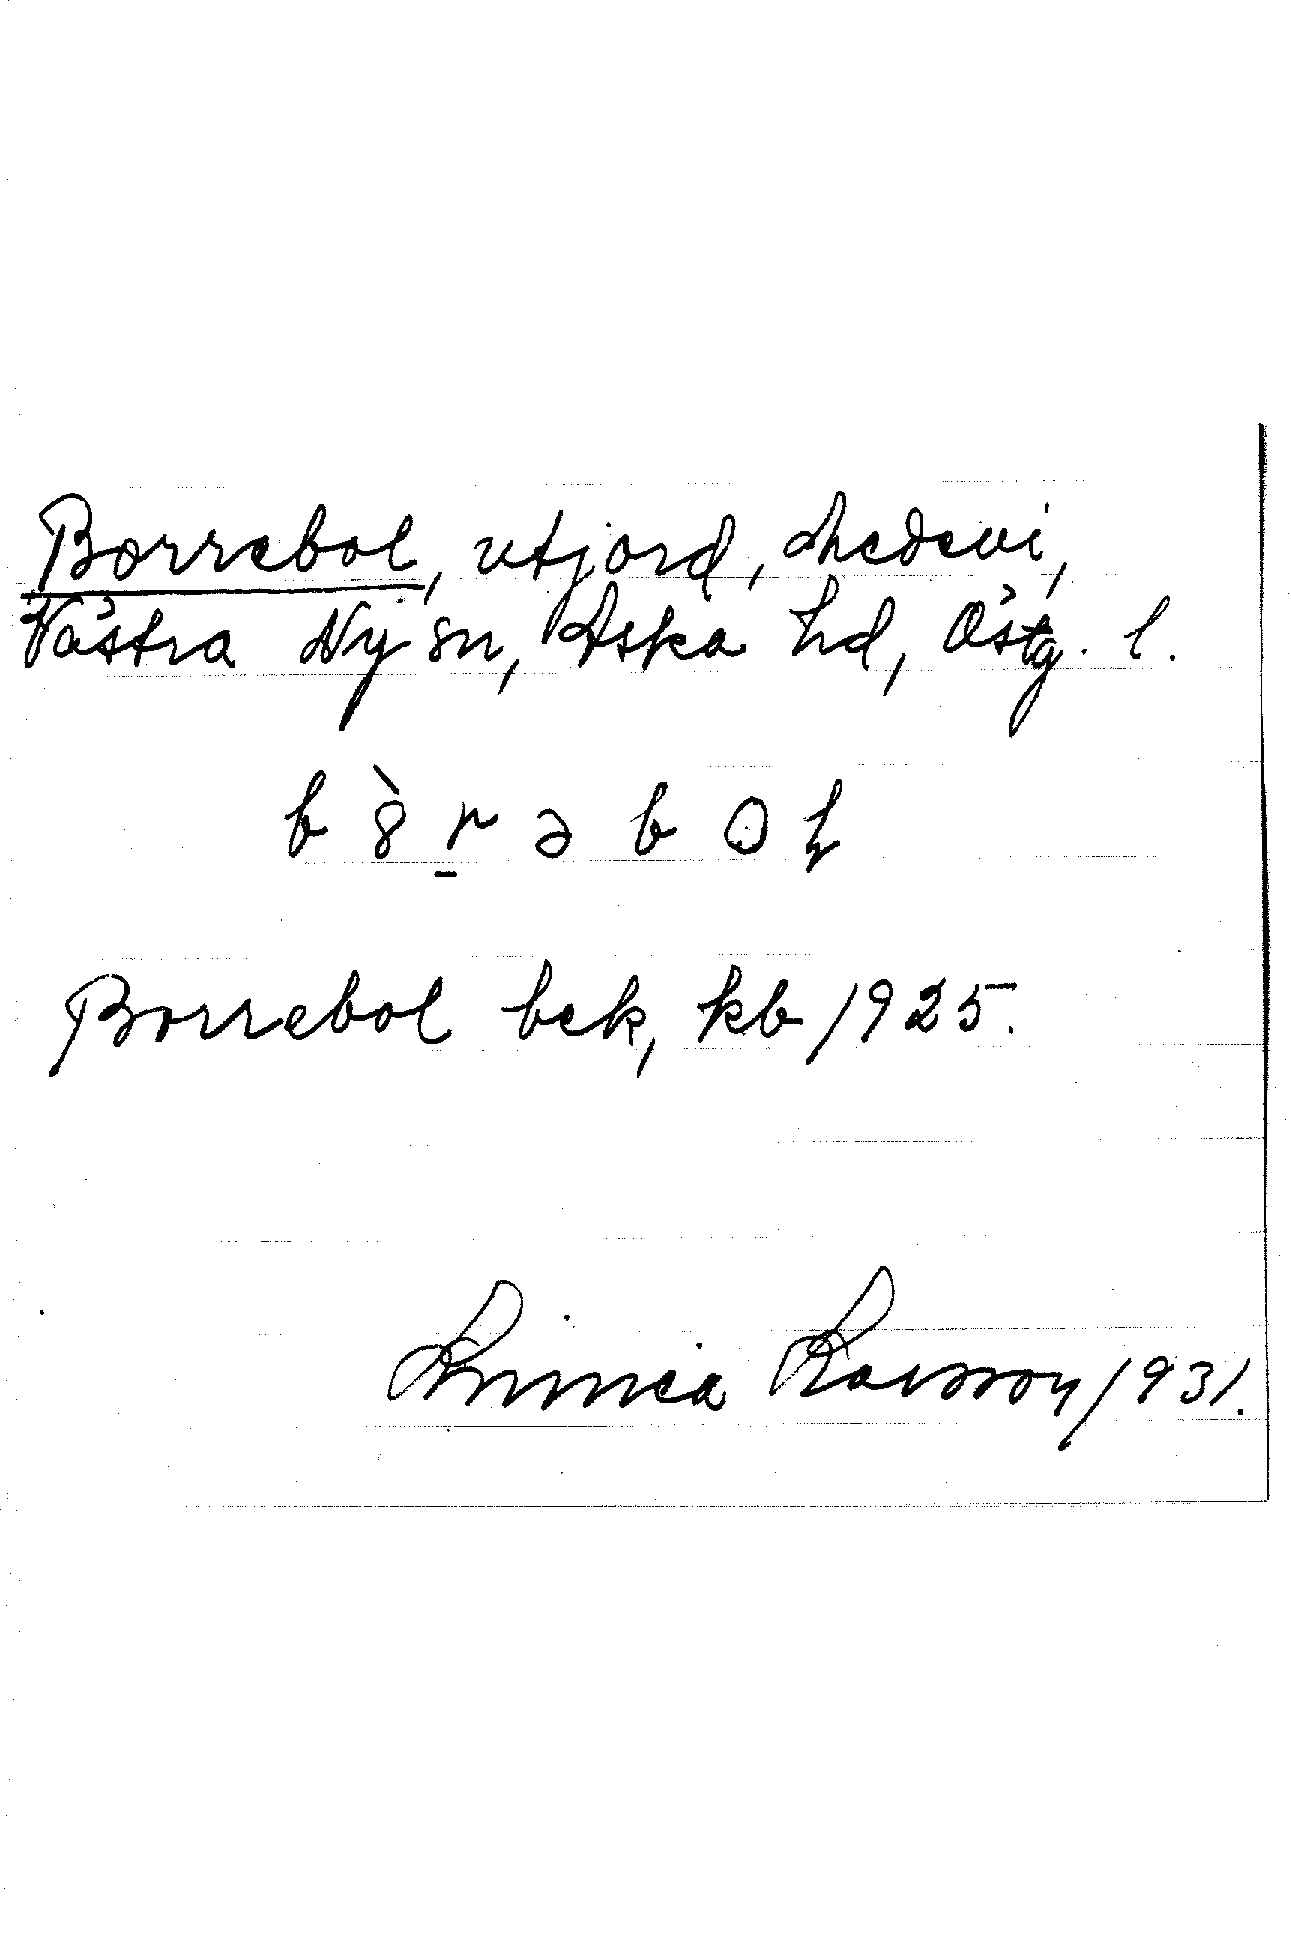 Borrebol, utjord, Medevi,
Västra Ny sn, Aska hd, Östg. l.
b 8̀ r̲ ə b ɔ ɫ
Borrebol bek, kb 1925.
Linnea Larsson 1931.